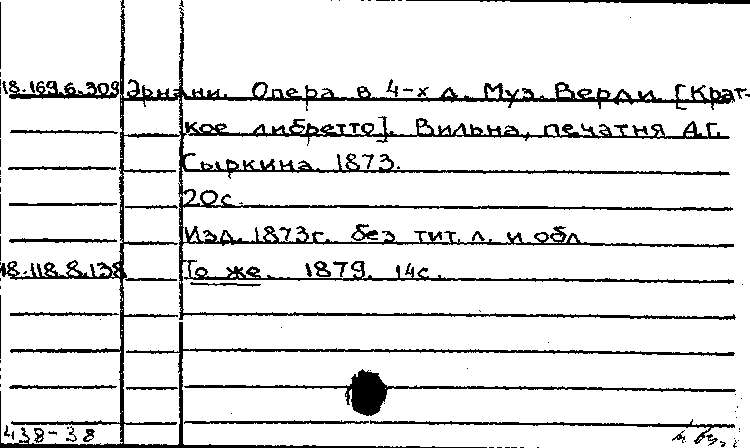 18.169.6.309 Эрнани. Опера в 4-х д. Муз. Верди [Крат-
кое либретто]. Вильна, печатня А.Г.
Сыркина. 1873.
20с.
Изд. 1873г. без тит. л. и обл
18.118.8.138 То же. 1879. 14с.
438-38